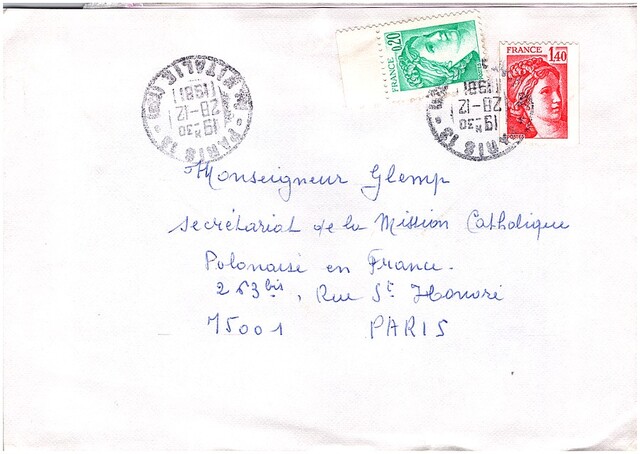 FRANCE 0,20
FRANCE 1,40
PARIS 13
19H30
28-12
1981
PARIS 13
19H30
28-12
1981
Monseigneur Glemp
Secrétariat de la Mission Catholique
Polonaise en France.
263 bis, Rue St Honoré
75001 PARIS